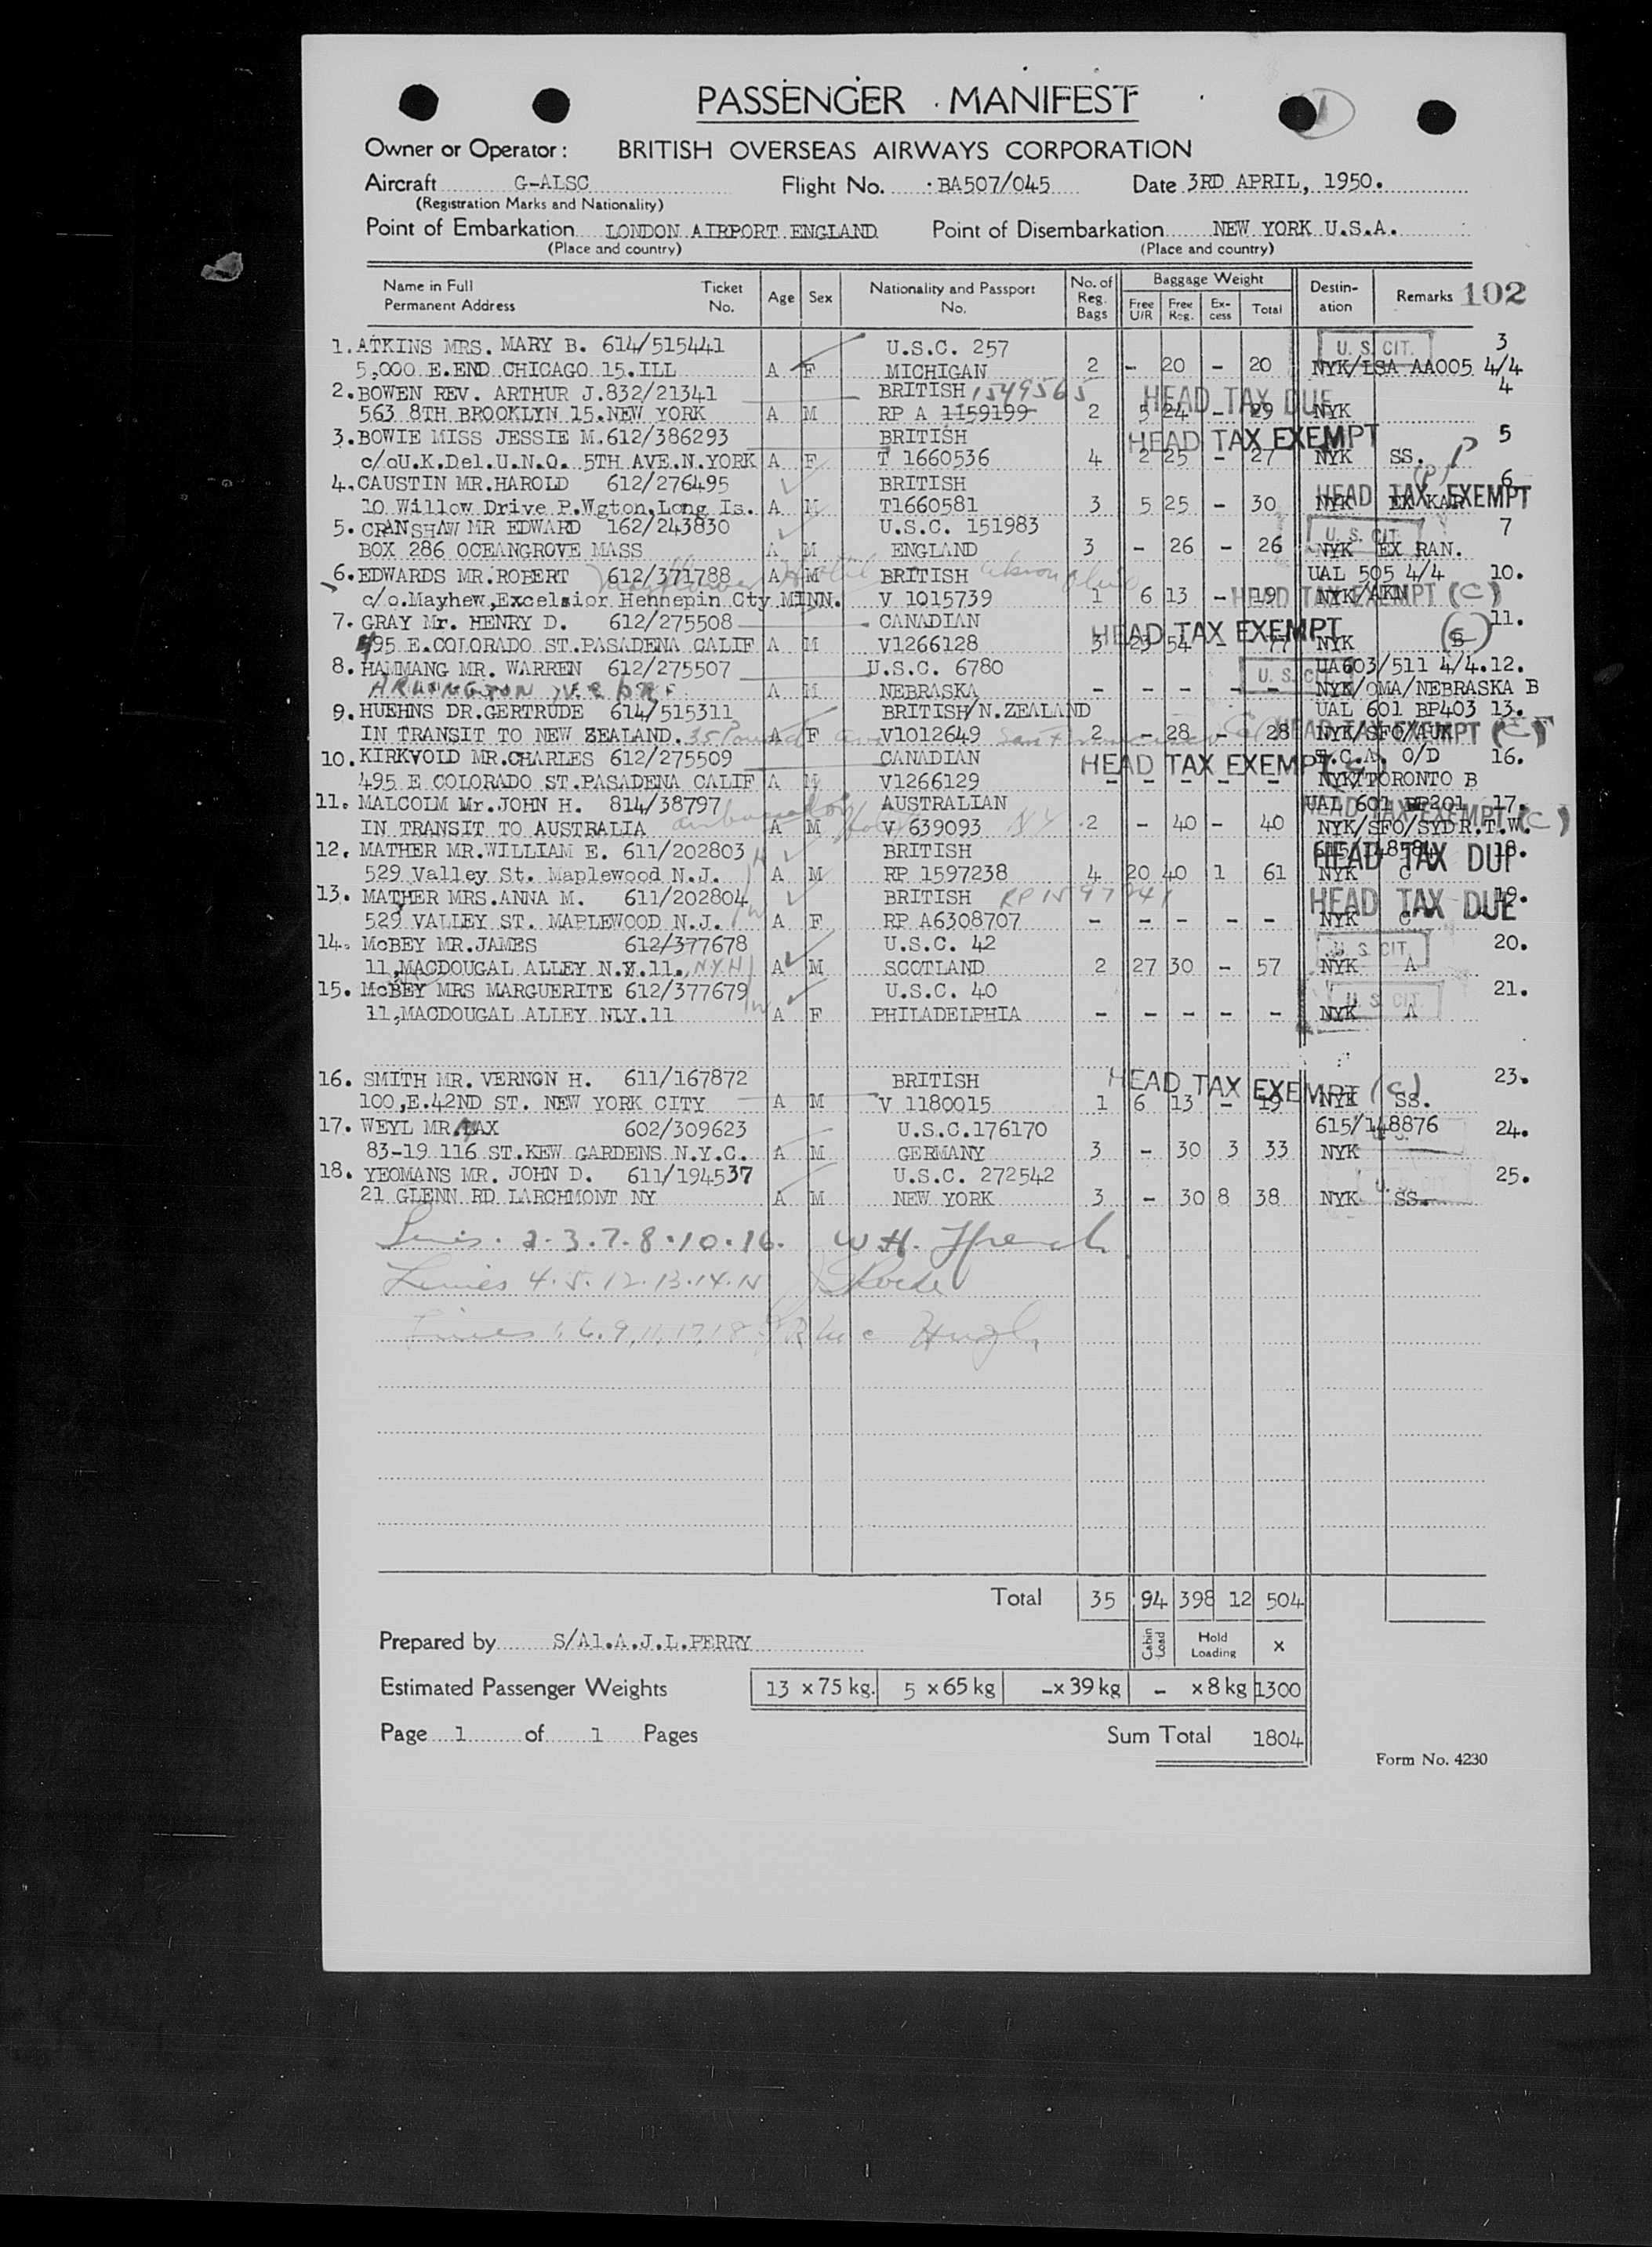 PASSENGER MANIFEST
Owner or Operator: BRITISH OVERSEAS AIRWAYS CORPORATION
Aircraft G-ALSC Flight No. BA507/045 Date 3RD APRIL, 1950.
(Registration Marks and Nationality)
Point of Embarkation LONDON AIRPORT ENGLAND Point of Disembarkation NEW YORK U.S.A.
(Place and country) (Place and country)
Name in Full Permanent Address Ticket No. Age Sex Nationality and Passport No. No. of Reg. Bags Baggage Weight Free U/R Free Reg. Ex-cess Total Destin-ation Remarks 102
1. ATKINS MRS. MARY B. 614/515441 U.S.C. 257 U.S. CIT. 3
5,000 E.END CHICAGO 15.ILL A F MICHIGAN 2 - 20 - 20 NYK/LSA AA005 4/4
2. BOWEN REV. ARTHUR J. 832/21341 BRITISH 1549565 HEAD TAX DUE 4
563 8TH BROOKLYN 15.NEW YORK A M RP A 1159199 2 5 24 - 29 NYK
3. BOWIE MISS JESSIE M. 612/386293 BRITISH HEAD TAX EXEMPT 5
c/oU.K.Del.U.N.O. 5TH AVE.N.YORK A F T 1660536 4 2 25 - 27 NYK SS. P
4. CAUSTIN MR.HAROLD 612/276495 BRITISH (P) 6
10 Willow Drive P.Wgton,Long Is. A M T1660581 3 5 25 - 30 NYK EX KAR HEAD TAX EXEMPT
5. CRANSHAW MR EDWARD 162/243830 U.S.C. 151983 U.S. CIT. 7
BOX 286 OCEANGROVE MASS A M ENGLAND 3 - 26 - 26 NYK EX RAN.
6. EDWARDS MR.ROBERT 612/371788 A M BRITISH UAL 505 4/4 10.
Mayflower Hotel Akron Ohio
c/o.Mayhew,Excelsior Hennepin Cty MINN. V 1015739 1 6 13 - 19 NYK/AKN HEAD TAX EXEMPT (C)
7. GRAY Mr. HENRY D. 612/275508 CANADIAN HEAD TAX EXEMPT 11.
495 E.COLORADO ST.PASADENA CALIF A M V1266128 3 23 54 - 77 NYK B
8. HAMMANG MR. WARREN 612/275507 U.S.C. 6780 U.S. CIT. UA603/511 4/4.12.
ARLINGTON A M NEBRASKA - - - - - NYK/OMA/NEBRASKA B
9. HUEHNS DR.GERTRUDE 614/515311 BRITISH/N.ZEALAND UAL 601 BP403 13.
IN TRANSIT TO NEW ZEALAND. A F V1012649 San Francisco 2 - 28 - 28 NYK/SFO/AUK HEAD TAX EXEMPT
10. KIRKVOLD MR.CHARLES 612/275509 CANADIAN HEAD TAX EXEMPT T.C.A. O/D 16.
495 E COLORADO ST.PASADENA CALIF A M V1266129 - - - - - NYK/TORONTO B
11. MALCOLM Mr.JOHN H. 814/38797 AUSTRALIAN UAL 601 BP201 17.
IN TRANSIT TO AUSTRALIA Ambassador Hotel A M V 639093 NY 2 - 40 - 40 NYK/SFO/SYD R.T.W. HEAD TAX EXEMPT (C)
12. MATHER MR.WILLIAM E. 611/202803 H BRITISH HEAD TAX DUE 18.
529 Valley St. Maplewood N.J. A M RP 1597238 4 20 40 1 61 NYK C
13. MATHER MRS.ANNA M. 611/202804 W BRITISH RP 1597241 HEAD TAX DUE 19.
529 VALLEY ST. MAPLEWOOD N.J. A F RP A6308707 - - - - - NYK C
14. McBEY MR.JAMES 612/377678 U.S.C. 42 U.S. CIT. 20.
11,MACDOUGAL ALLEY N.Y.11. N.Y. H A M SCOTLAND 2 27 30 - 57 NYK A
15. McBEY MRS MARGUERITE 612/377679 W U.S.C. 40 U.S. CIT. 21.
11,MACDOUGAL ALLEY NLY.11 A F PHILADELPHIA - - - - - NYK A
16. SMITH MR. VERNON H. 611/167872 BRITISH HEAD TAX EXEMPT (C) 23.
100,E.42ND ST. NEW YORK CITY A M V 1180015 1 6 13 - 19 NYK SS.
17. WEYL MR.MAX 602/309623 U.S.C.176170 615/148876 24.
83-19 116 ST.KEW GARDENS N.Y.C. A M GERMANY 3 - 30 3 33 NYK
18. YEOMANS MR. JOHN D. 611/194537 U.S.C. 272542 U.S. CIT. 25.
21 GLENN RD LARCHMONT NY A M NEW YORK 3 - 30 8 38 NYK SS.
Lines. 2.3.7.8.10.16. W.H.
Lines 4.5.12.13.14.15
Lines 1,6,9,11,17,18
Total 35 94 398 12 504
Prepared by S/A1.A.J.L.PERRY Cabin Load Hold Loading x
Estimated Passenger Weights 13 x 75 kg. 5 x 65 kg - x 39 kg - x 8 kg 1300
Page 1 of 1 Pages Sum Total 1804
Form No. 4230